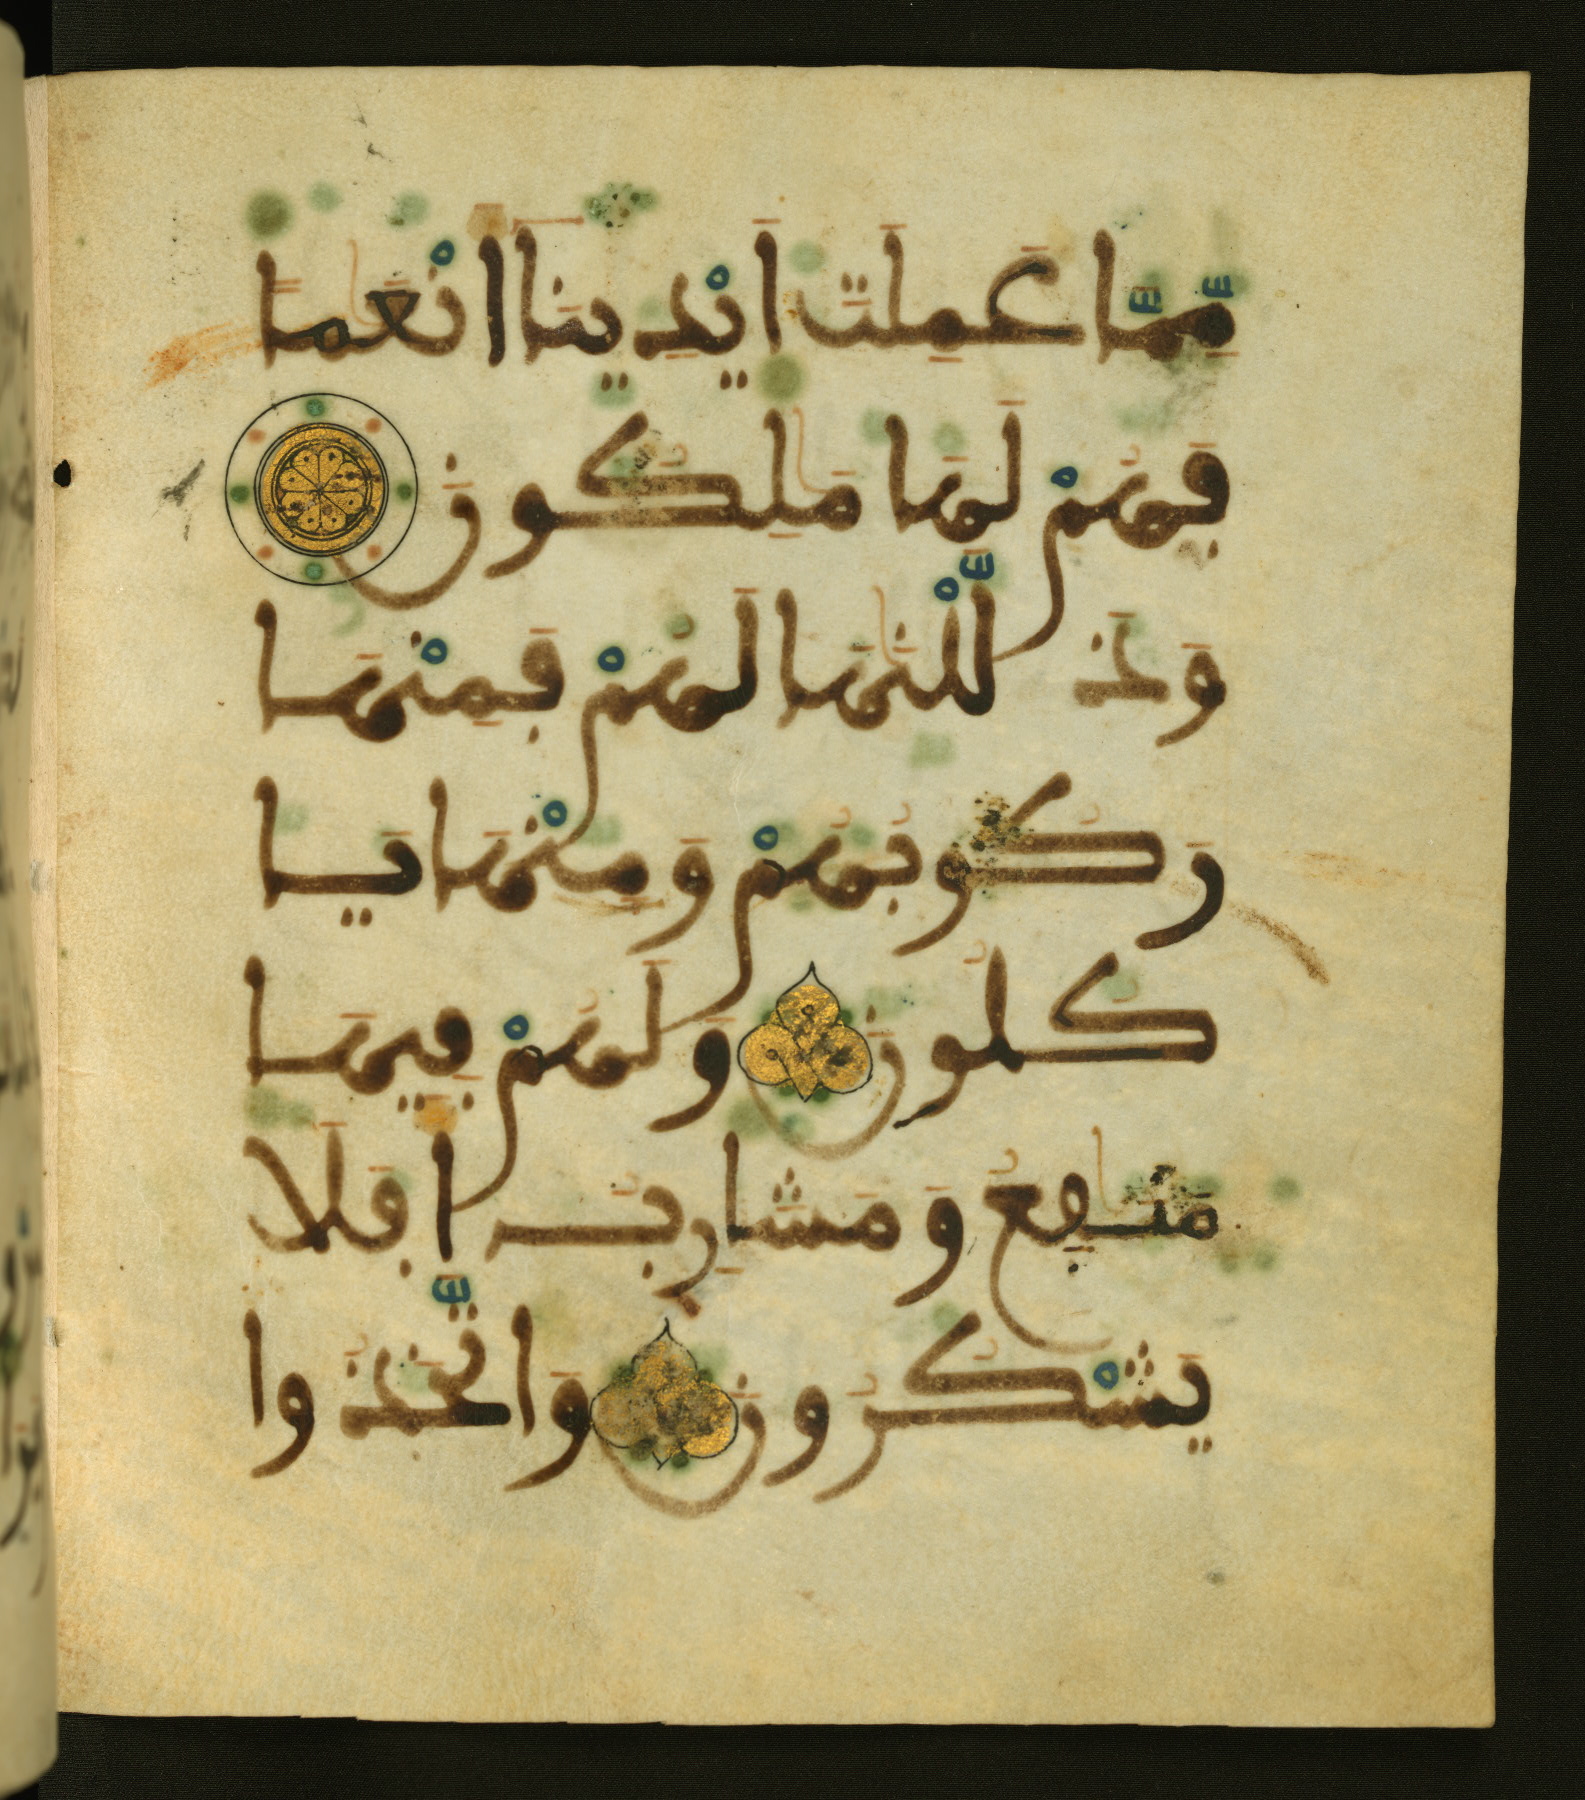 مِّمَّا عَمِلَتَ اَيْدِينَا اَنْعَٰمًا
فَهُمْ لَهَا مَٰلِكُونَ
وَذَ لَّلْنَٰهَا لَهُمْ فَمِنْهَا
رَكُوبُهُمْ وَمِنْهَا يَا
كُلُونَ وَلَهُمْ فِيهَا
مَنَٰفِعُ وَمَشَارِبُ اَفَلَا
يَشْكُرُونَ وَاتَّخَذُوا